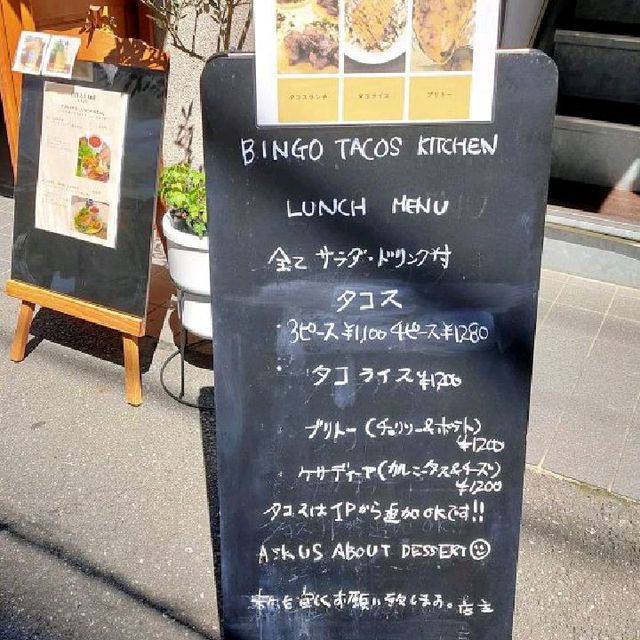 タコスランチ
タコライス
ブリトー
BINGO TACOS KITCHEN
LUNCH MENU
全て サラダ・ドリンク付
タコス
・3ピース¥1,100 4ピース¥1280
・タコライス¥1200
ブリトー(チョリソー&ポテト)
¥1200
ケサディーア(カルニータス&チーズ)
¥1200
タコスは1Pから追加OKです!!
ASK US ABOUT DESSERT☺
宜しくお願い致します。店主